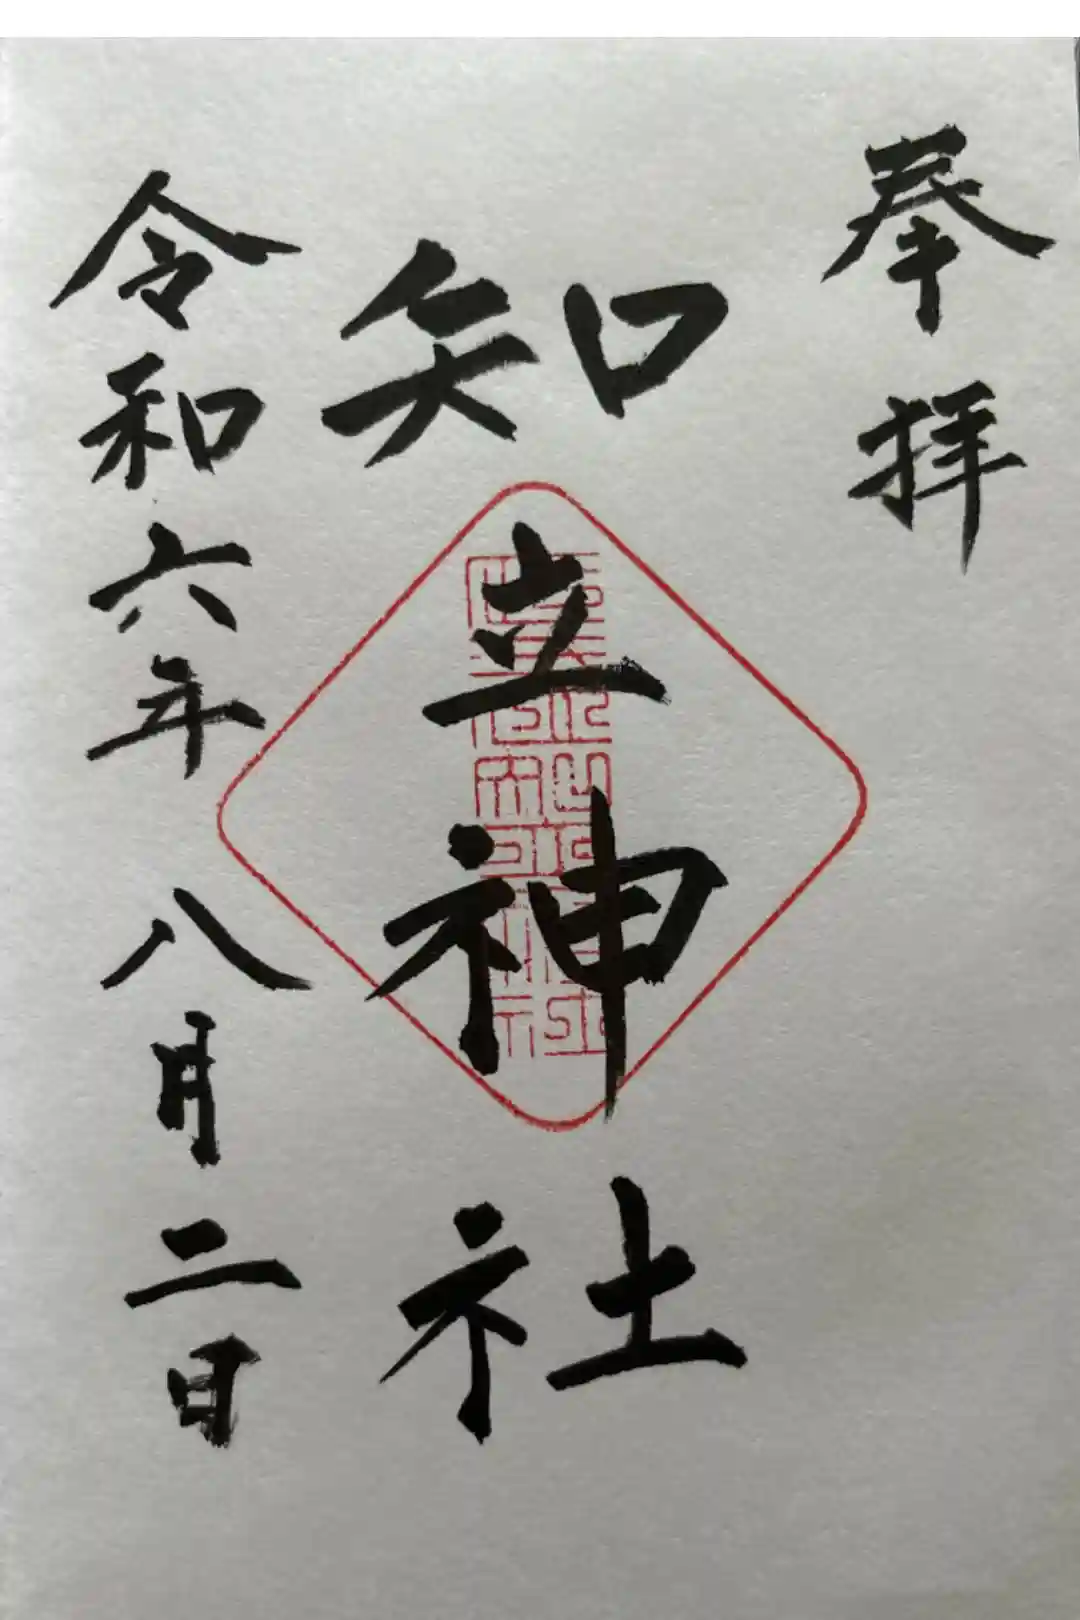 奉拝
知立神社
令和六年八月二日